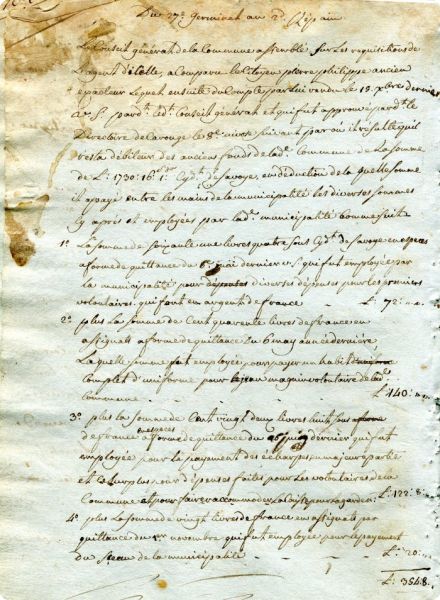 Du 27e Germinal an 2d Rep aine
Le Conseil général de la Commune assemblé sur les requisitions de
L'agent d'icelle, a Comparu le Citoyen pierre philippe ancien
exacteur Lequel ensuitte du Compte par lui rendu le 18 xbre dernier
au dt Conseil general et qui fut approuvé par le
Directoire de Carouge le 8e nivose suivant par où il resulte qu'il
resta débiteur des anciens fonds de lade Commune de La somme
de L: 1730: 16s de savoye, en déduction de la quelle somme
il a payé entre les mains de la municipalité les diverses sommes
cy après et employées par lade municipalité comme suit
1o La somme de soixante une livres quatre sous de Savoye en especes
a forme de quittance du 6e mai dernier qui fut employée par
la municipalité pour diverses dépenses pour les premiers
volontaires qui font en argent de france L: 72:
2o plus La somme de Cent quarente livres de france en
assignats a forme de quittance du 6 may année dernière
Laquelle somme fut employée pour payer un habit
complet d'uniforme pour volontaire de lade
Commune L: 140:
3o plus la somme de Cent vingt deux livres huit sous
de france en especes a forme de quittance du dernier qui fut
employée pour le payement des écharpes en majeure partie
et le surplus pour dépenses faites pour les volontaires de
Commune et pour faire accommoder L: 122: 8:
4o plus La somme de vingt livres de france en assignats par
quittance du 1er novembre qui fut employée pour le payement
du sceau de la municipalité L: 20:
L: 354.8.